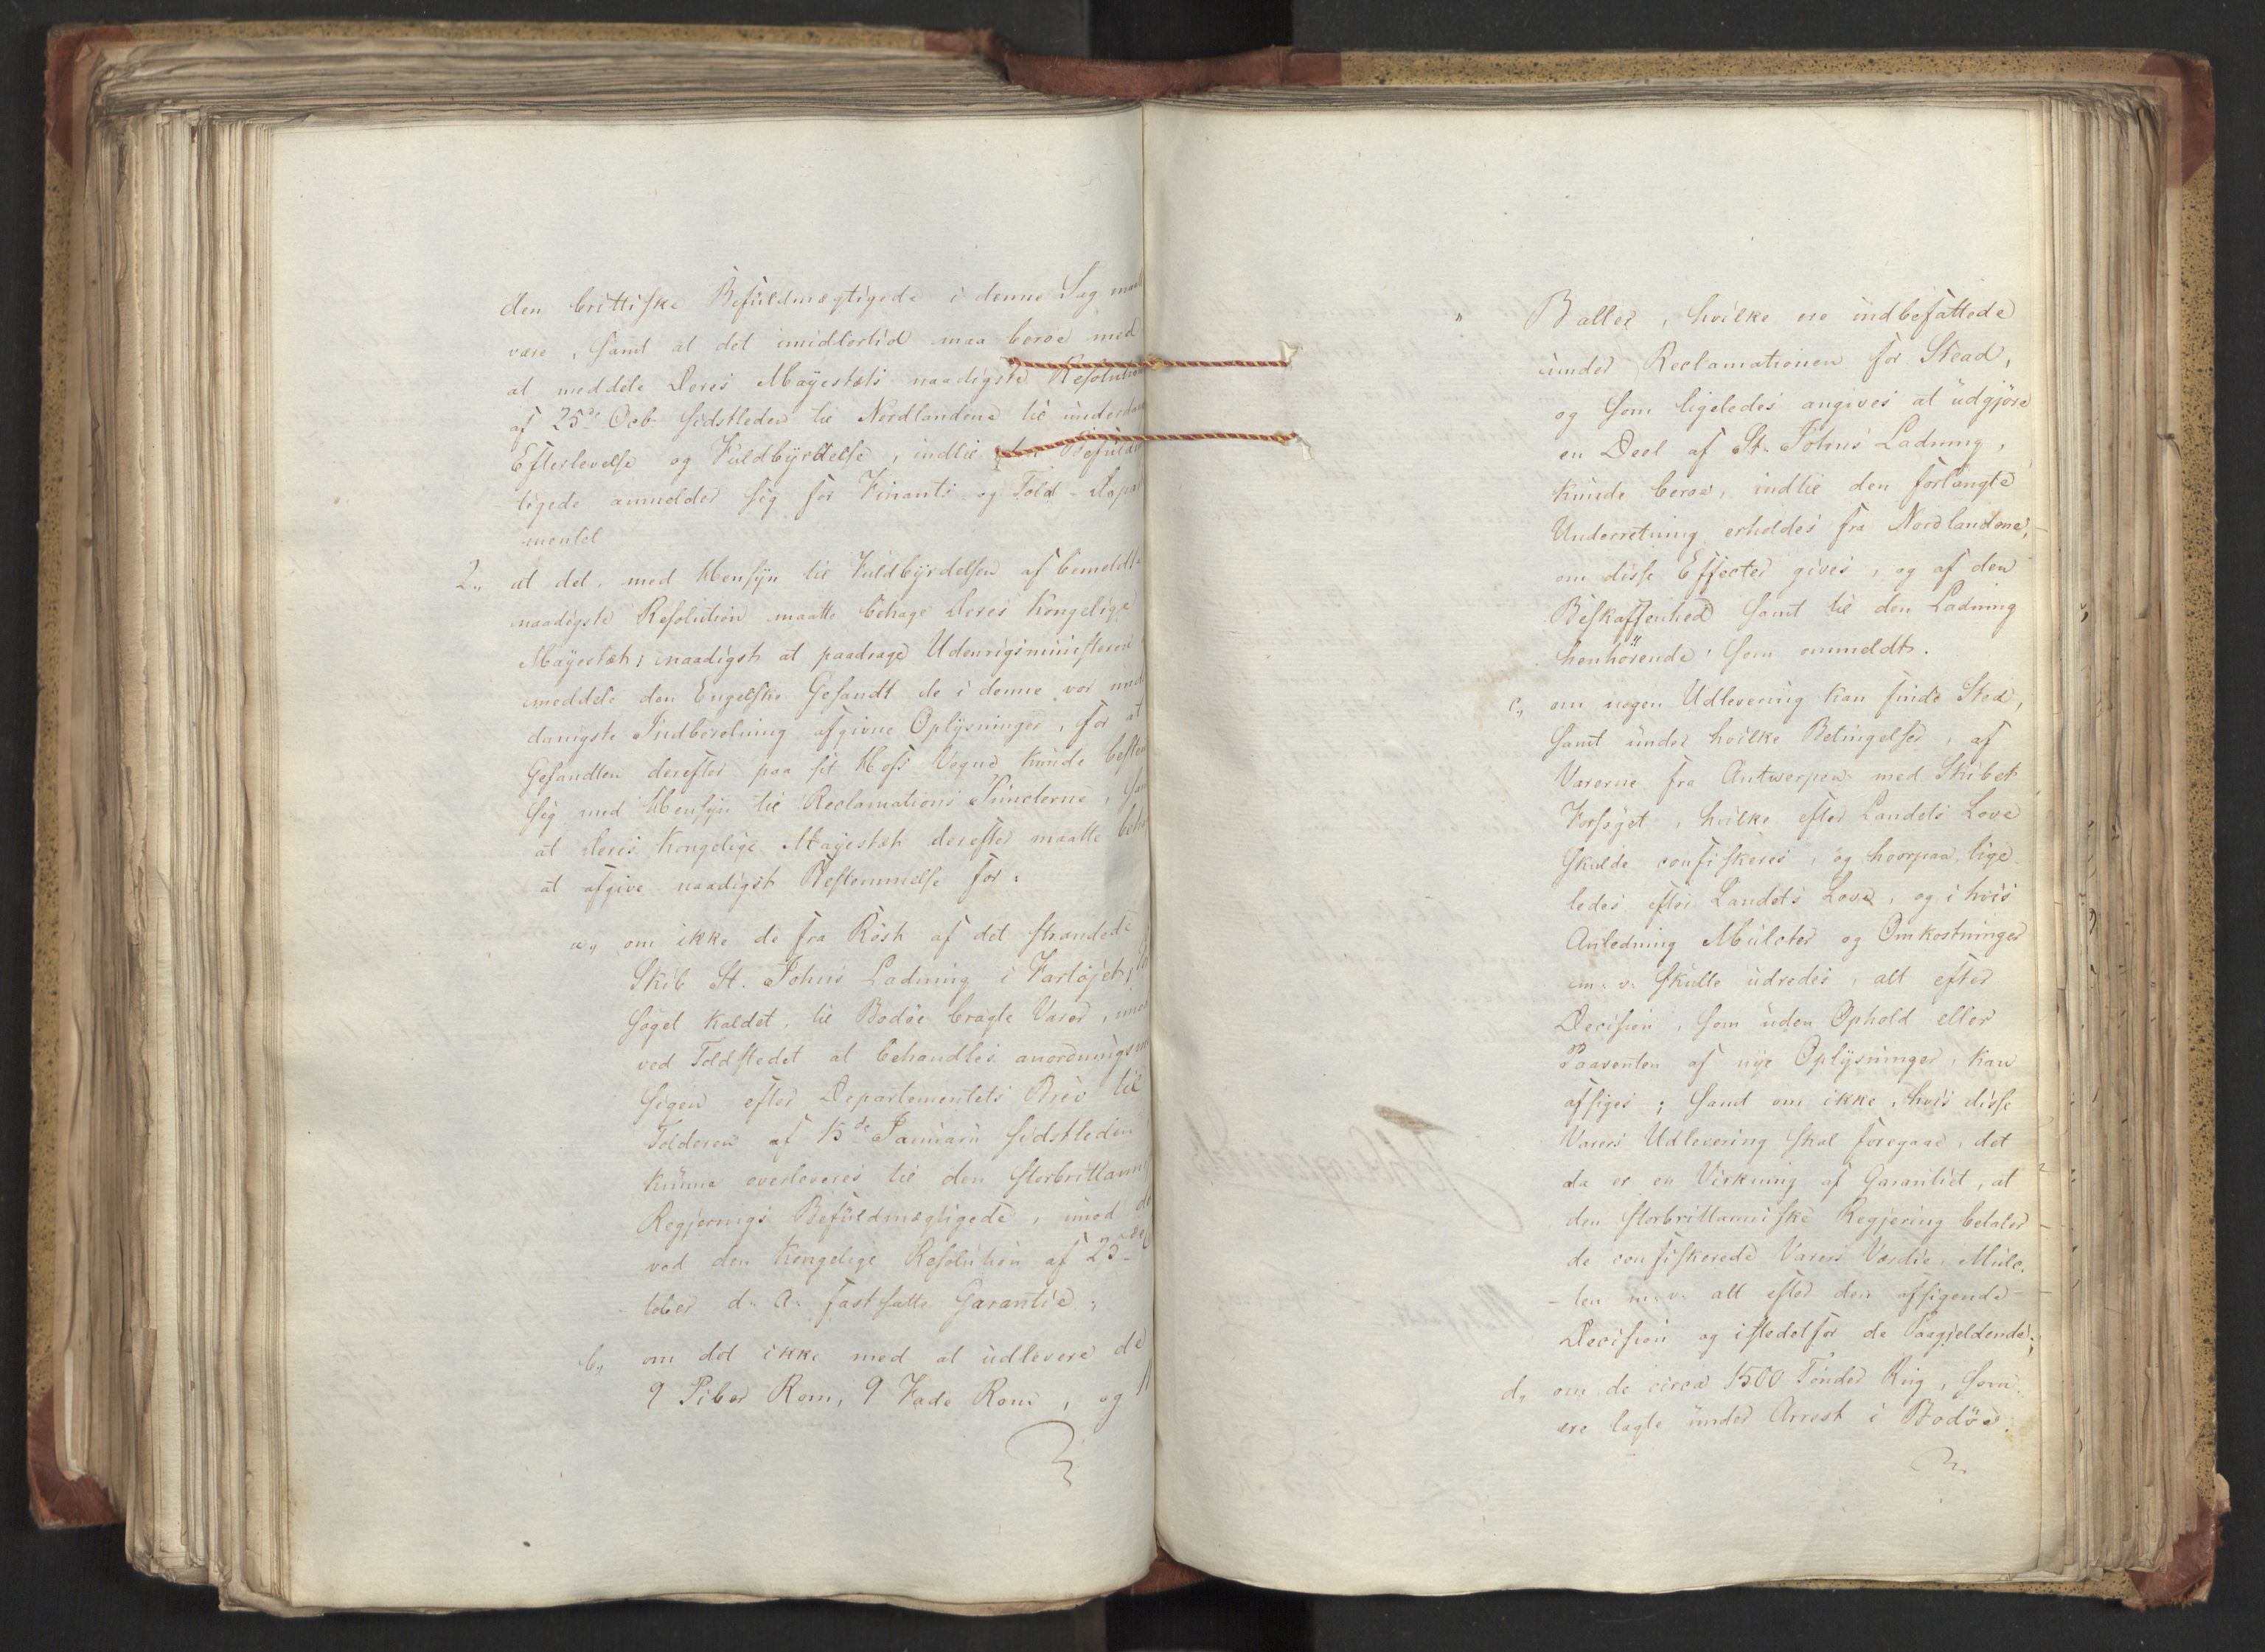 den brittiske Befuldmægtigede i denne Sag
være, samt at det imidlertid maa beroe med
at meddele Deres Mayestæts naadigste Resolution
af 25de Octb. sidstleden til Nordlandene til
Efterlevelse og Fuldbyrdelse, indtil den
tigede anmelder sig for Finants- og Told-Depar
mentet
2., at det med Hensyn til Fuldbyrdelsen af bemeldte
naadigste Resolution maatte behage Deres Kongelige
Mayestæt, naadigst at paadrage Udenrigsministeren
meddele den Engelske Gesandt de i denne vor und
danigste Indberetning afgivne Oplysninger, for at
Gesandten derefter paa sit Hofs Vegne kunde
sig med Hensyn til Reclamations Puncterne,
at Deres Kongelige Mayestæt derefter maatte
at afgive naadigst Bestemmelse for:
a., om ikke de fra Röst af det strandede
Skib St. Johns Ladning i Fartöjet,
söget kaldet, til Bodöe bragte Varer,
ved Toldstedet at behandles
sigen efter Departementets Brev til
Tolderen af 15de Januarii sidstleden
kunne overleveres til den storbrittann
Regjerings Befuldmægtigede, imod de
ved den Kongelige Resolution af 25de
tober d. A. fastsatte Garantie;
b., om det ikke med at udlevere de
9 Piber Rom, 9 Fade Rom, og 11
" Baller, hvilke ere indbefattede
under Reclamationen for Stead,
og som ligeledes angives at udgjöre
en Deel af St. Johns Ladning,
kunde beroe, indtil den forlangte
Underretning erholdes fra Nordlandene,
om disse Effecter gives, og af den
Beskaffenhed samt til den Ladning
henhörende som anmeldt.
c., om nogen Udlevering kan finde Sted,
samt under hvilke Betingelser, af
Varerne fra Antwerpen med Skibet
Forsöget, hvilke efter Landets Love
skulde confiskeres, og hvorpaa, lige
ledes efter Landets Love, og i hvis
Anledning Mulcter og Omkostninger
m: v: skulle udredes, alt efter
Decision, som uden Ophold eller
Paaventen af nye Oplysninger, kan
afsiges; samt om ikke, hvis disse
Varers Udlevering skal foregaae, det
da er en Virkning af Garantiet, at
den storbrittanniske Regjering betaler
de confiskerede Varers Værdie, Mulc-
ten m: v: alt efter den afsigende
Decision og istedetfor de Paagjeldende;
d., om de circa 1500 Tönder Rug, som
ere lagte under Arrest i Bodöe